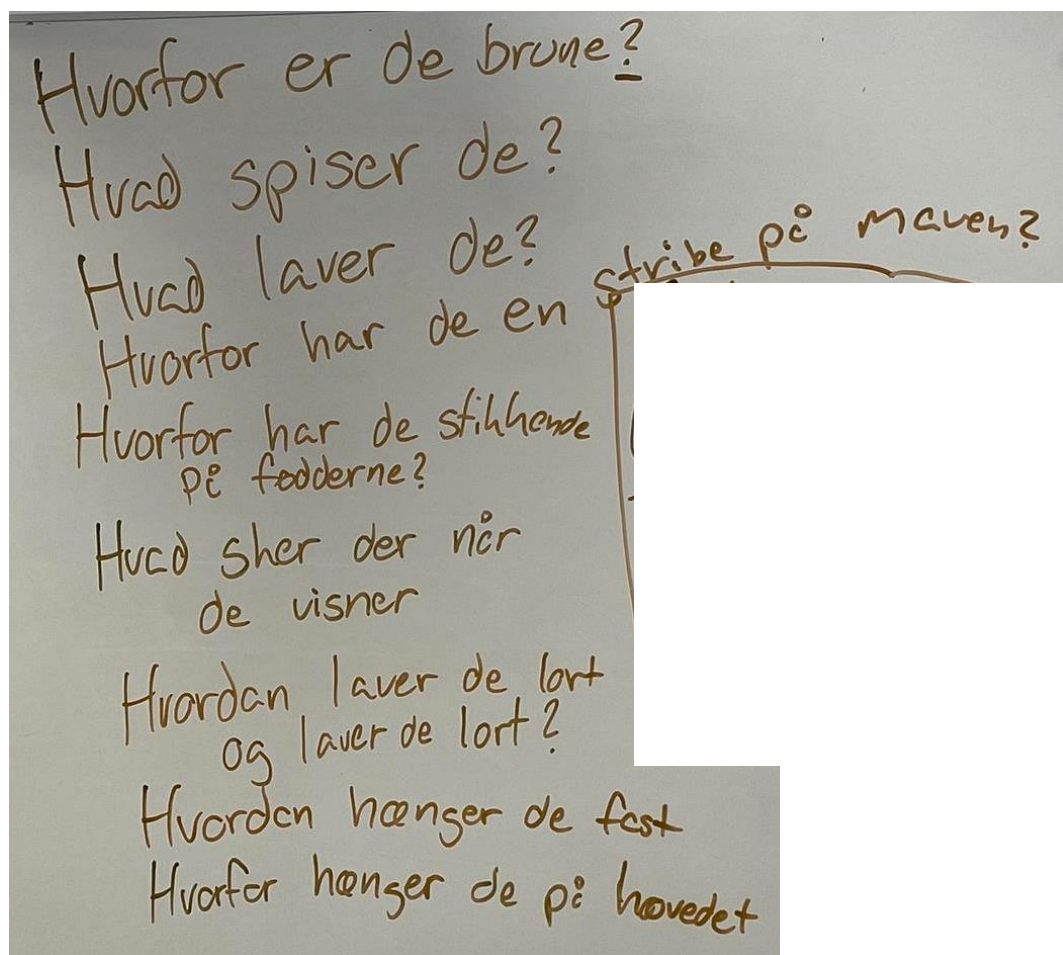 Hvorfor er de brune?
Hvad spiser de?
Hvad laver de?
Hvorfor har de en stribe på maven?
Hvorfor har de stikkende
på fødderne?
Hvad sker der når
de visner
Hvordan laver de lort
og laver de lort?
Hvordan hænger de fast
Hvorfor hænger de på hovedet